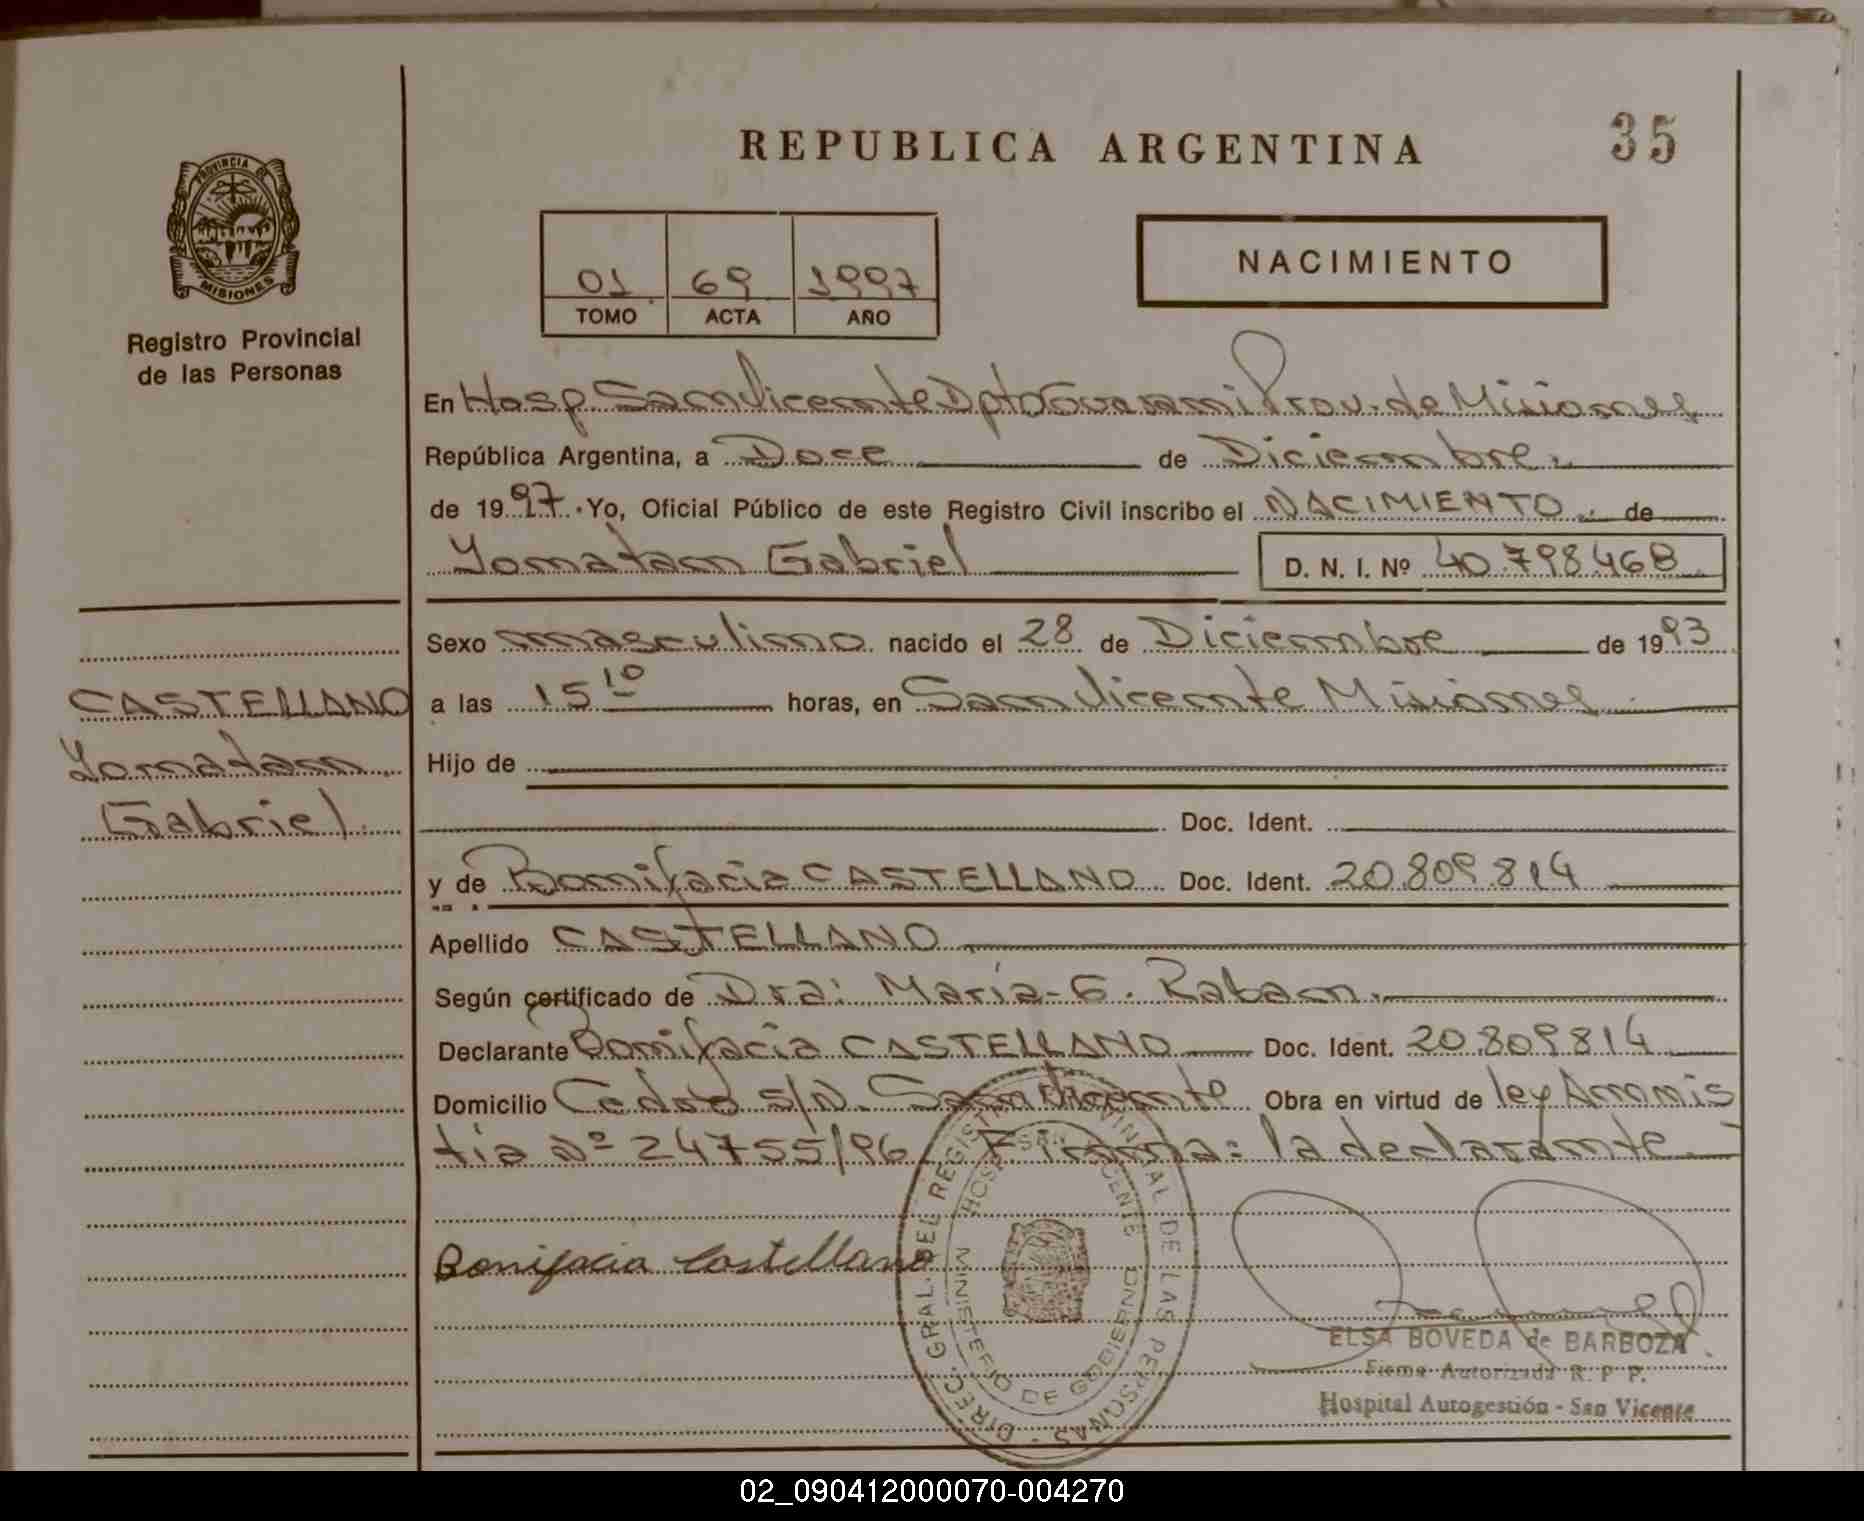 35
REPUBLICA ARGENTINA
PROVINCIA DE
MISIONES
Registro Provincial
de las Personas
01 69 1997
TOMO ACTA AÑO
NACIMIENTO
En Hosp San Vicente Dpto Guarani Prov. de Misiones
República Argentina, a Doce de Diciembre
de 1997. Yo, Oficial Público de este Registro Civil inscribo el NACIMIENTO de
Yonatan Gabriel D. N. I. Nº 40.798.468
Sexo masculino nacido el 28 de Diciembre de 1993
a las 15 10 horas, en San Vicente Misiones
Hijo de
Doc. Ident.
y de Bonifacia CASTELLANO Doc. Ident. 20.809.814
Apellido CASTELLANO
Según certificado de Dra: María G. Raban.
Declarante Bonifacia CASTELLANO Doc. Ident. 20.809814
Domicilio Cedro s/N. San Vicente Obra en virtud de ley Amnis
tía Nº 24755/96 Firma: la declarante
CASTELLANO
Yonatan
Gabriel
Bonifacia Castellano
DIREC. GRAL. DEL REGISTRO PROVINCIAL DE LAS PERSONAS
HOSP. SAN VICENTE
MINISTERIO DE GOBIERNO
ELSA BOVEDA de BARBOZA
Firma Autorizada R. P. P.
Hospital Autogestión - San Vicente
02_090412000070-004270